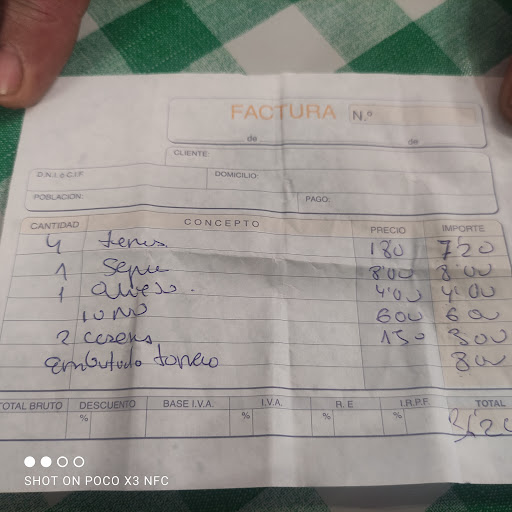 FACTURA N.º
de de
CLIENTE:
D.N.I. o C.I.F. DOMICILIO:
POBLACION: PAGO:
CANTIDAD CONCEPTO PRECIO IMPORTE
4 180 7'20
1 sepia 8'00 8'00
1 4'00 4'00
600 600
2 150 300
embutido 800
TOTAL BRUTO DESCUENTO BASE I.V.A. I.V.A. R. E I.R.P.F. TOTAL
% % % %
SHOT ON POCO X3 NFC